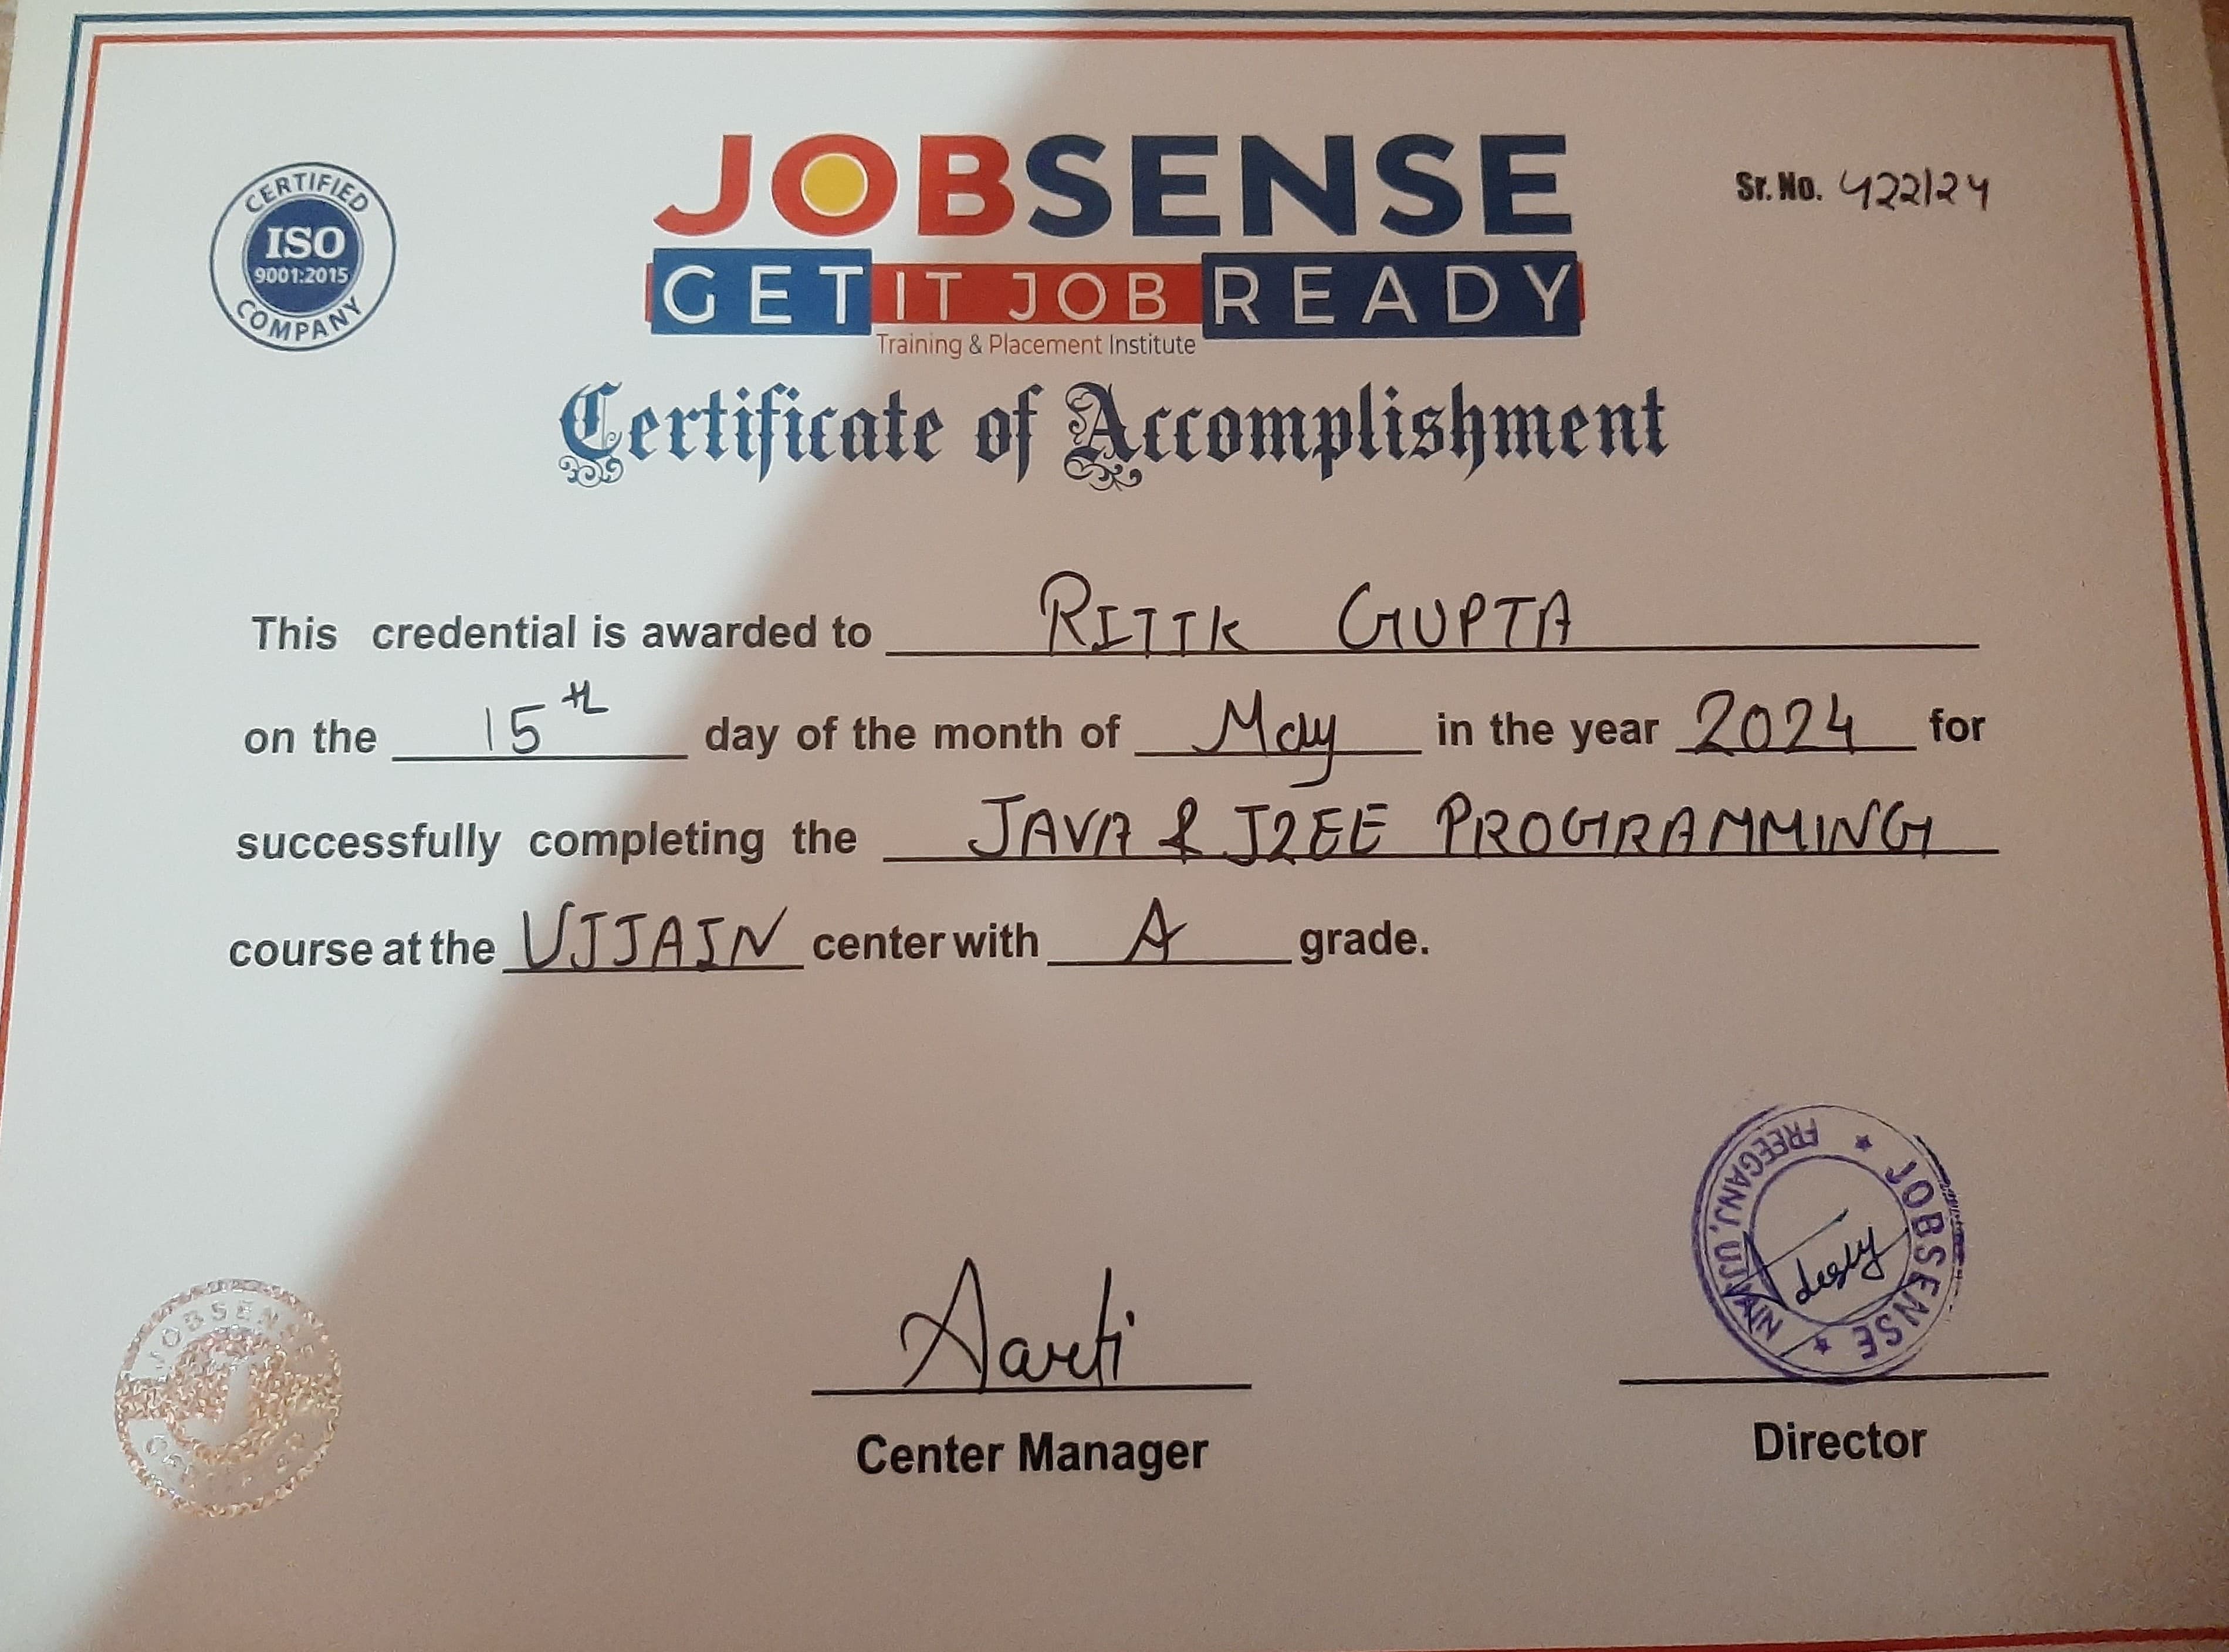 CERTIFIED
ISO
9001:2015
COMPANY
JOBSENSE
GET IT JOB READY
Training & Placement Institute
Sr. No. 422/24
Certificate of Accomplishment
This credential is awarded to RITIK GUPTA
on the 15th day of the month of May in the year 2024 for
successfully completing the JAVA & J2EE PROGRAMMING
course at the UJJAIN center with A grade.
JOBSENSE
J
Aarti
Center Manager
JOBSENSE
FREEGANJ, UJJAIN
Director